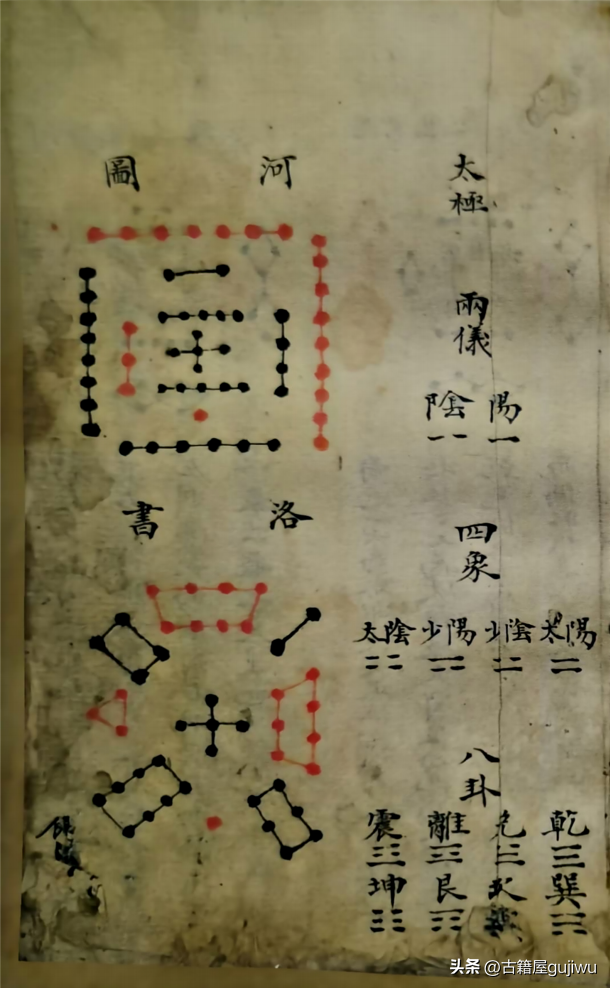 太極
兩儀
陽 陰
四象
太陽 少陰 少陽 太陰
八卦
乾 兌 離 震
巽 坎 艮 坤
河圖
洛書
头条 @古籍屋gujiwu